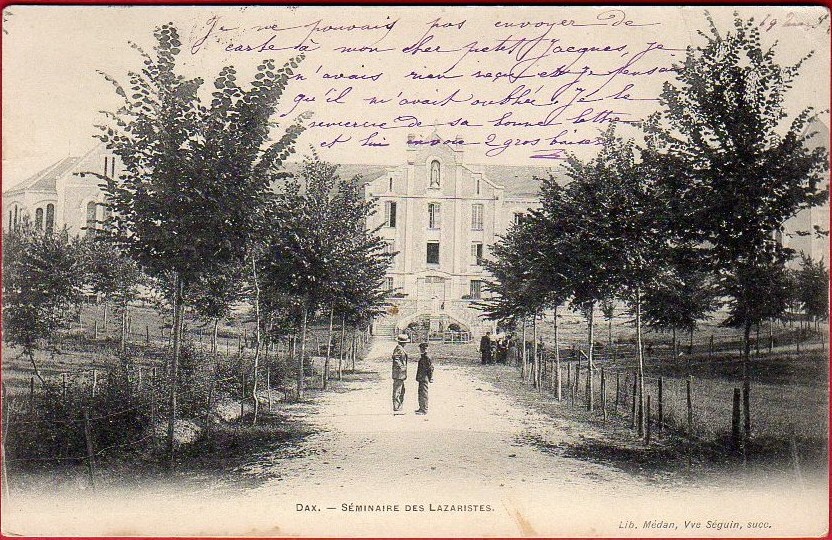 Je ne pouvais pas envoyer de
carte à mon cher petit Jacques, je
n'avais rien reçu et je pensais
qu'il m'avait oublié. Je le
remercie de sa bonne lettre
et lui envoie 2 gros baisers
19
DAX. — SÉMINAIRE DES LAZARISTES.
Lib. Médan, Vve Séguin, succ.